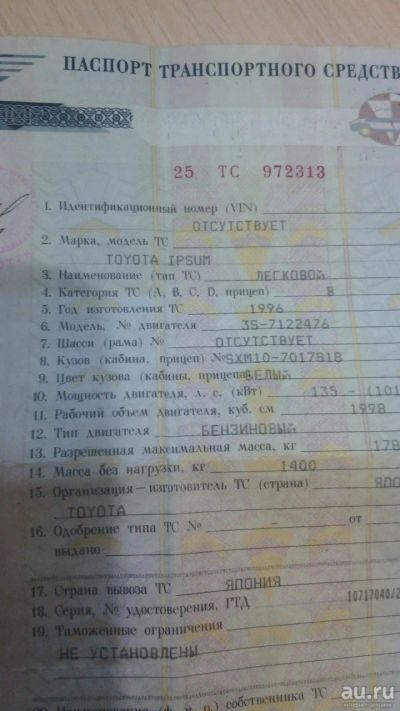 ПАСПОРТ ТРАНСПОРТНОГО СРЕДСТВ
25 ТС 972313
1. Идентификационный номер (VIN)
ОТСУТСТВУЕТ
2. Марка, модель ТС
TOYOTA IPSUM
3. Наименование (тип ТС) ЛЕГКОВОЙ
4. Категория ТС (A, B, C, D, прицеп) B
5. Год изготовления ТС 1996
6. Модель, № двигателя 3S-7122476
7. Шасси (рама) № ОТСУТСТВУЕТ
8. Кузов (кабина, прицеп) № SXM10-7017818
9. Цвет кузова (кабины, прицепа) БЕЛЫЙ
10. Мощность двигателя, л. с. (кВт) 135 - (101
11. Рабочий объем двигателя, куб. см 1998
12. Тип двигателя БЕНЗИНОВЫЙ
13. Разрешенная максимальная масса, кг 178
14. Масса без нагрузки, кг 1400
15. Организация—изготовитель ТС (страна) ЯПО
TOYOTA
16. Одобрение типа ТС № - от
выдано
17. Страна вывоза ТС ЯПОНИЯ
18. Серия, № удостоверения, ГТД 10717040/2
19. Таможенные ограничения
НЕ УСТАНОВЛЕНЫ
(ф. и. о.) собственника ТС
au.ru